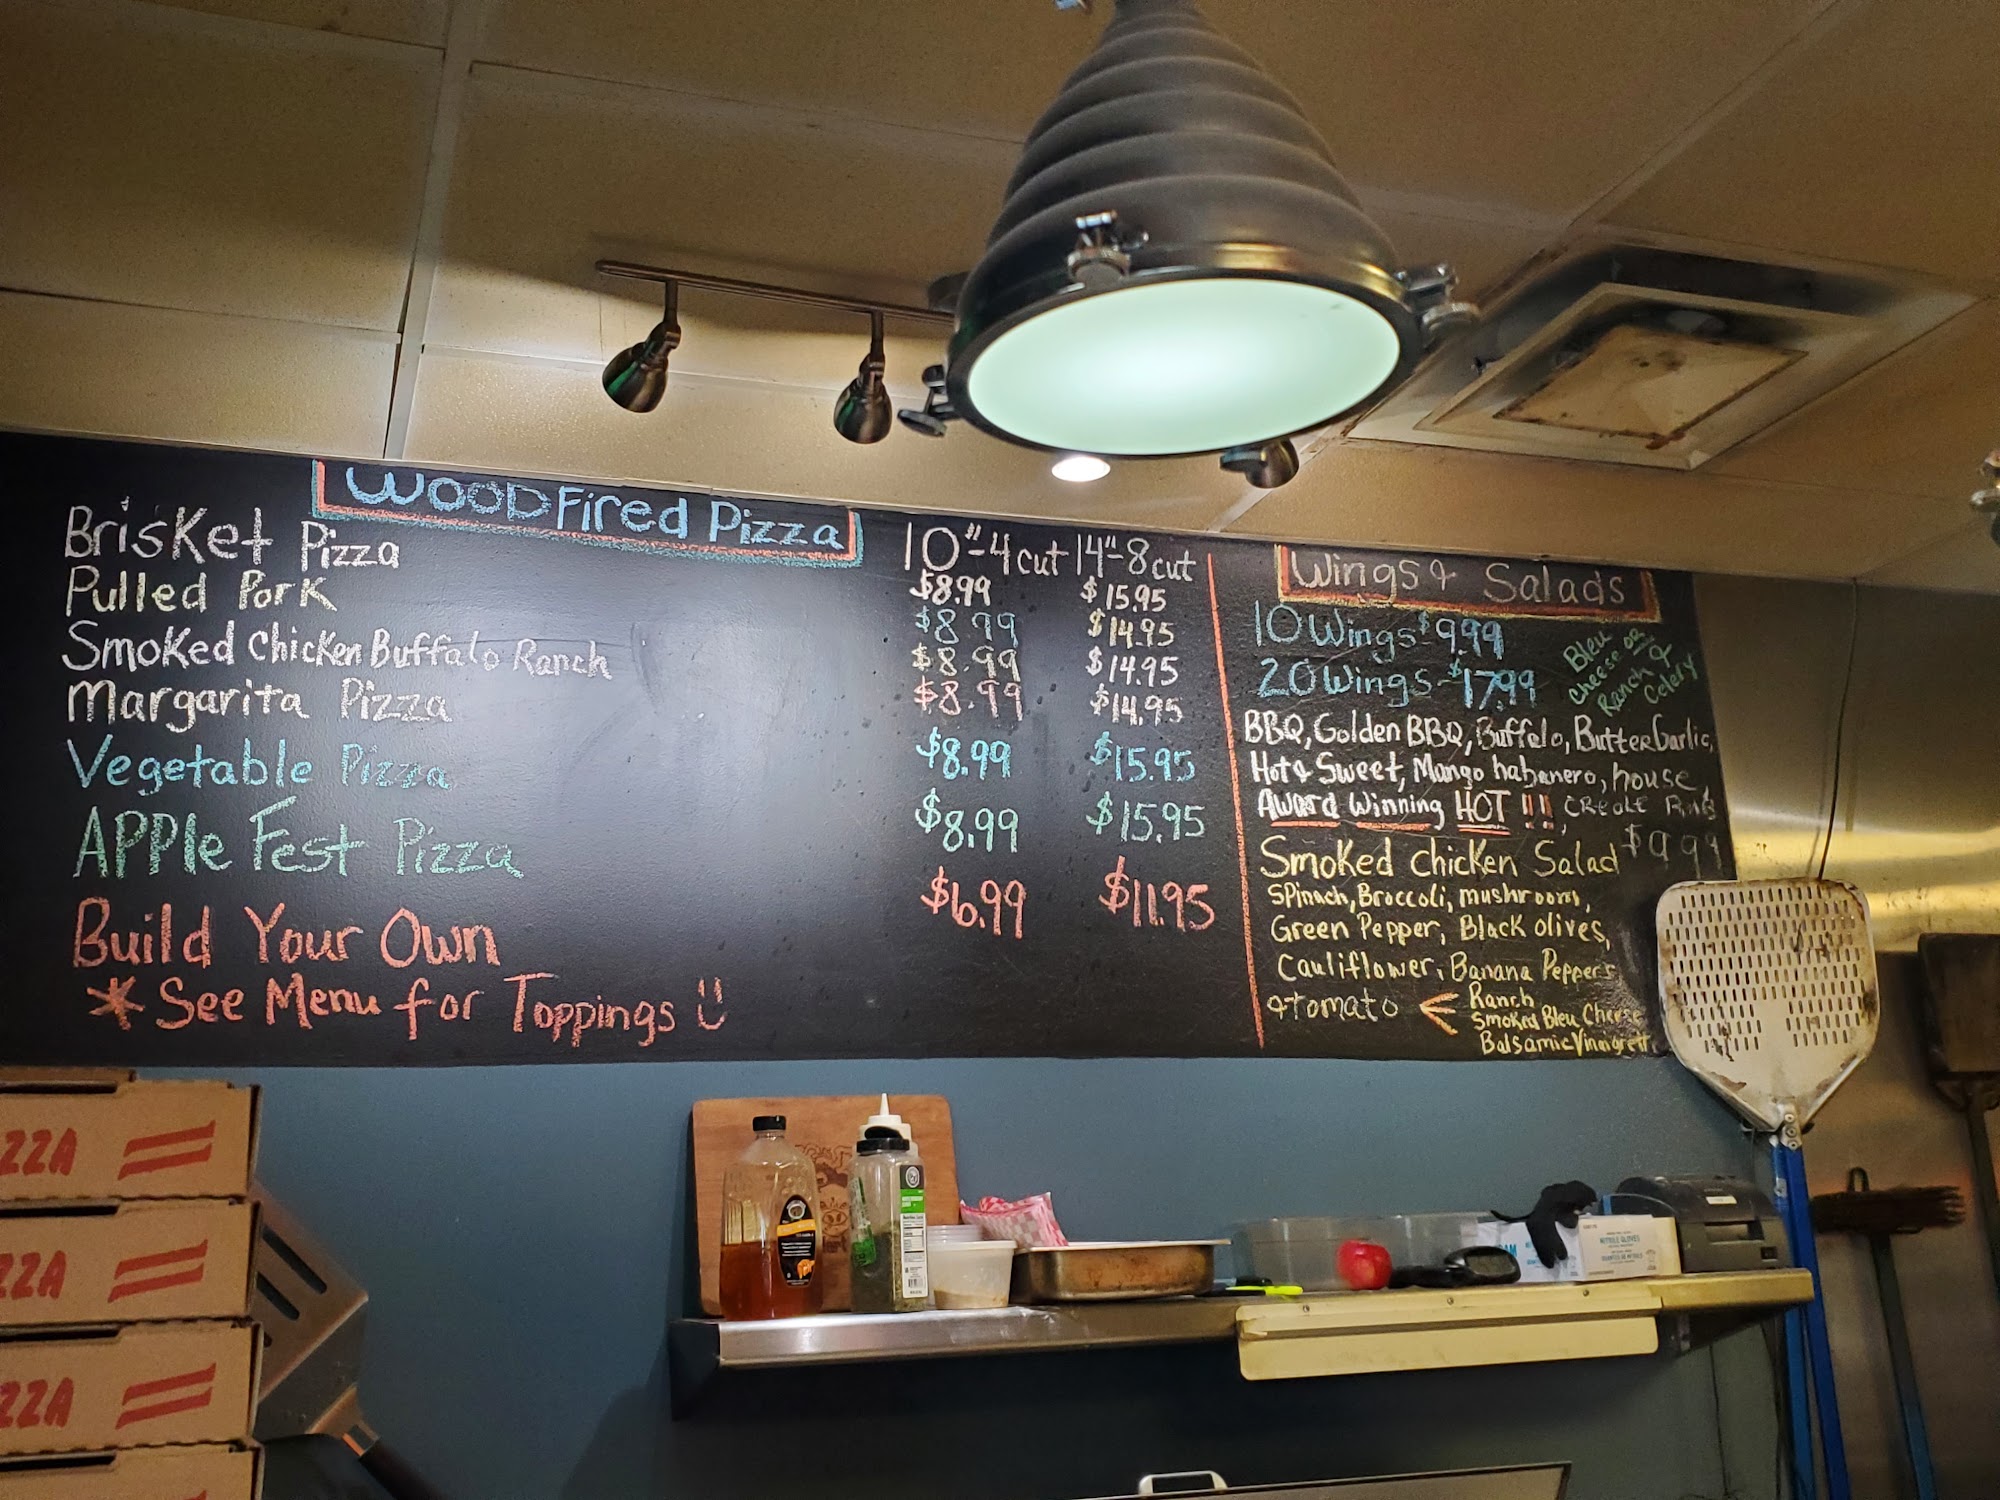 WOOD Fired Pizza
10"-4 cut 14"-8 cut
Brisket Pizza $8.99 $15.95
Pulled Pork $8.99 $14.95
Smoked Chicken Buffalo Ranch $8.99 $14.95
Margarita Pizza $8.99 $14.95
Vegetable Pizza $8.99 $15.95
APPle Fest Pizza $8.99 $15.95
Build Your Own $6.99 $11.95
*See Menu for Toppings
Wings & Salads
10 Wings $9.99
20 Wings - $17.99
Bleu
Cheese or
Ranch &
Celery
BBQ, Golden BBQ, Buffalo, Butter Garlic,
Hot & Sweet, Mango habanero, house,
Award Winning HOT !!!,
Smoked Chicken Salad $9.99
Spinach, Broccoli, mushrooms,
Green Pepper, Black olives,
Cauliflower, Banana Peppers
& Tomato
Ranch
Smoked Bleu Cheese
Balsamic Vinaigrett
ZZA
ZZA
ZZA
NITRILE GLOVES